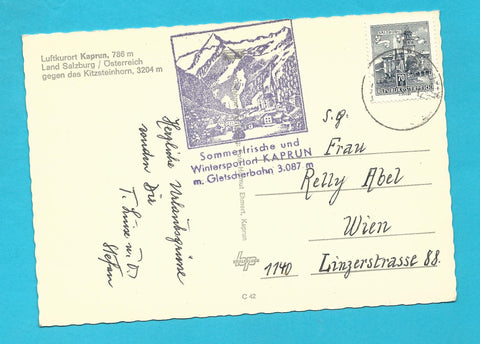 Luftkurort Kaprun, 786 m
Land Salzburg / Österreich
gegen das Kitzsteinhorn, 3204 m
Sommerfrische und
Wintersportort KAPRUN
m. Gletscherbahn 3.087 m
Herzliche Urlaubsgrüsse
senden Dir
T. Luise u.
Stefan
Kaprun
C 42
70
REPUBLIK ÖSTERREICH
S.g.
Frau
Relly Abel
Wien
1140 Linzerstrasse 88.